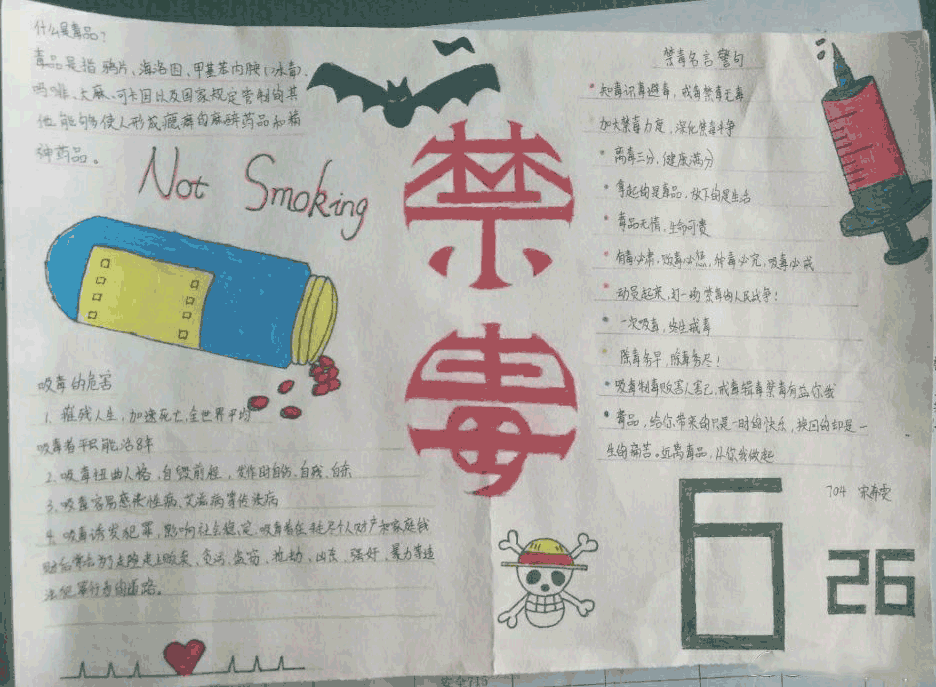 什么是毒品?
毒品是指鸦片、海洛因、甲基苯丙胺(冰毒)、
吗啡、大麻、可卡因以及国家规定管制的其
他能够使人形成瘾癖的麻醉药品和精
神药品。
Not Smoking
吸毒的危害
1. 摧残人生,加速死亡,全世界平均
吸毒者平只能活8年
2. 吸毒扭曲人格,自毁前程,发作时自伤、自残、自杀
3. 吸毒容易感染性病、艾滋病等传染病
4. 吸毒诱发犯罪,影响社会稳定,吸毒者在耗尽个人财产和家庭钱
财后常会走险走上贩卖、贪污、盗窃、抢劫、凶杀、强奸、暴力等违
法犯罪行为的道路。
禁毒
禁毒名言警句
知毒识毒避毒,戒毒禁毒无毒
加大禁毒力度,深化禁毒斗争
离毒三分,健康满分
拿起的是毒品,放下的是生活
毒品无情,生命可贵
有毒必肃,贩毒必惩,种毒必究,吸毒必戒
动员起来,打一场禁毒的人民战争!
一次吸毒,终生戒毒
除毒务早,除毒务尽!
吸毒制毒贩害人害己,戒毒缉毒禁毒有益你我
毒品,给你带来的只是一时的快乐,换回的却是一
生的痛苦。远离毒品,从你我做起
704
6
26
安全715